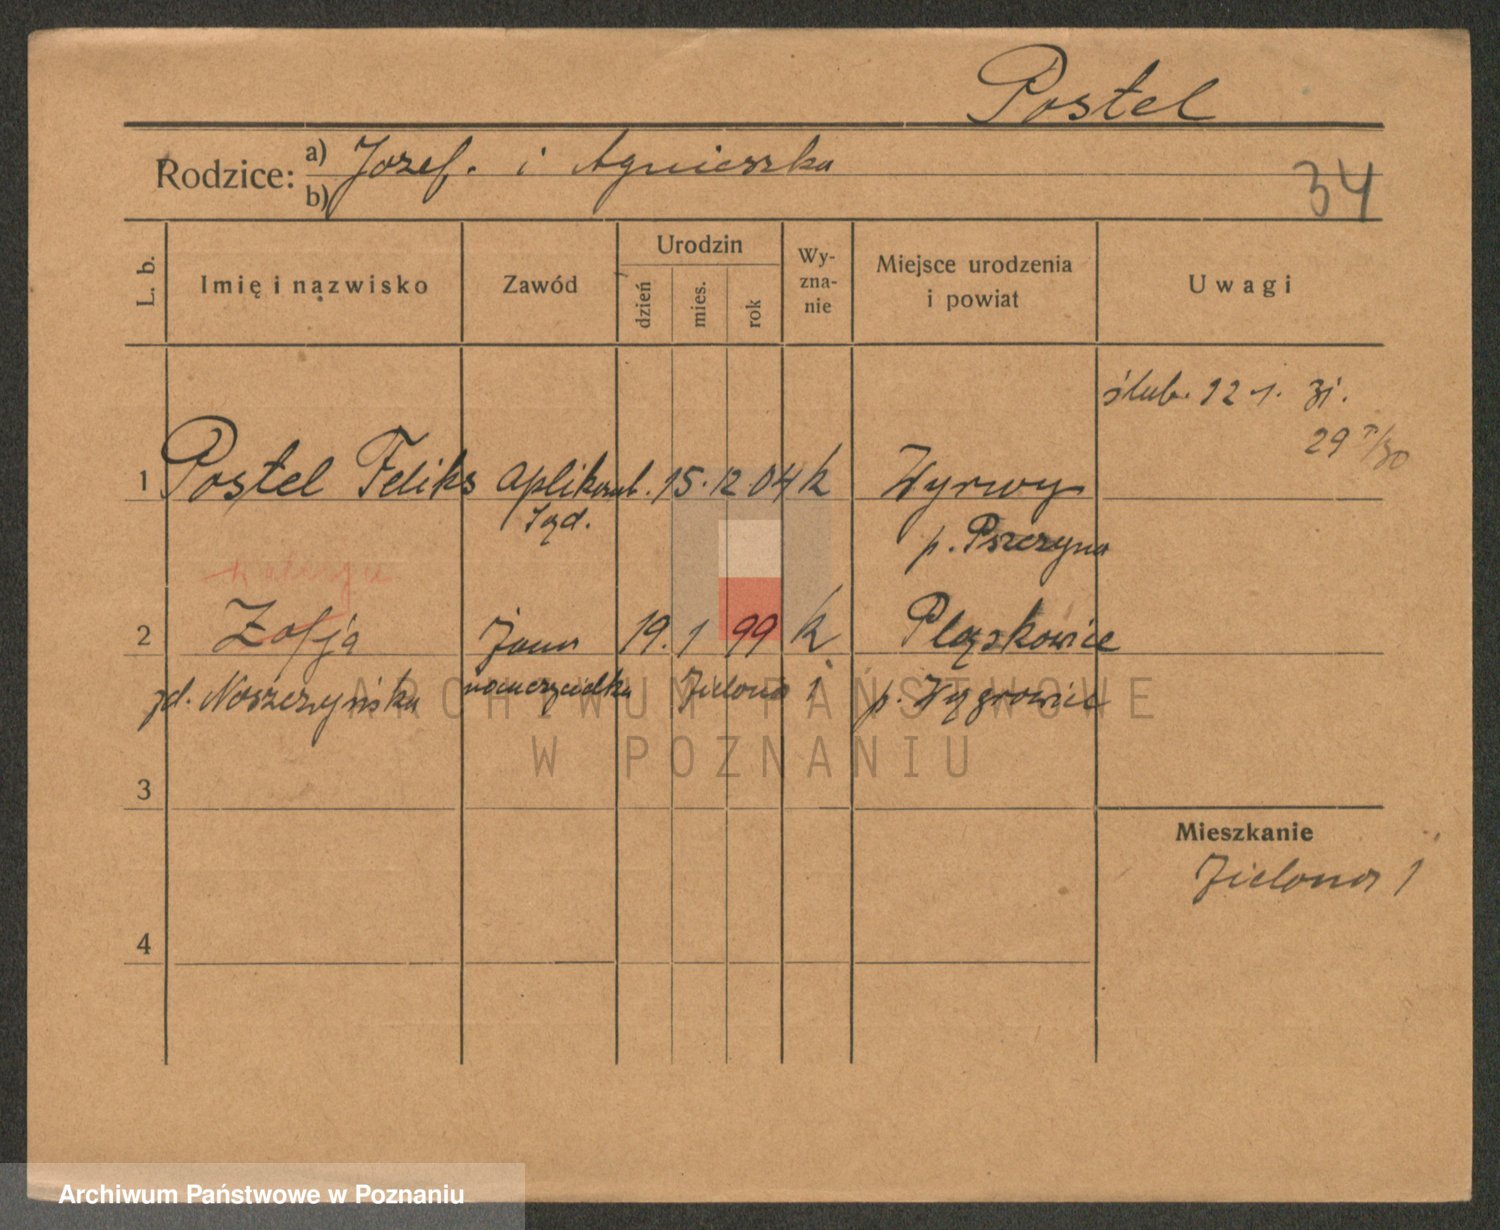 Postel
Rodzice: a) Jozef. i Agnieszka
b)
34
L. b.
Imię i nazwisko
Zawód
Urodzin
dzień
mies.
rok
Wy-
zna-
nie
Miejsce urodzenia
i powiat
Uwagi
ślub. 22 1. 31.
29
1 Postel Feliks aplikant. 15. 12 04 k Wyrwy
Sąd. p. Pszczyna
2 Zofja żona 19. 1 99 k
zd. Noszczyńska nauczycielka Zielona 1 p. Wągrowiec
ARCHIWUM PAŃSTWOWE
W POZNANIU
3
Mieszkanie
Zielona 1
4
Archiwum Państwowe w Poznaniu